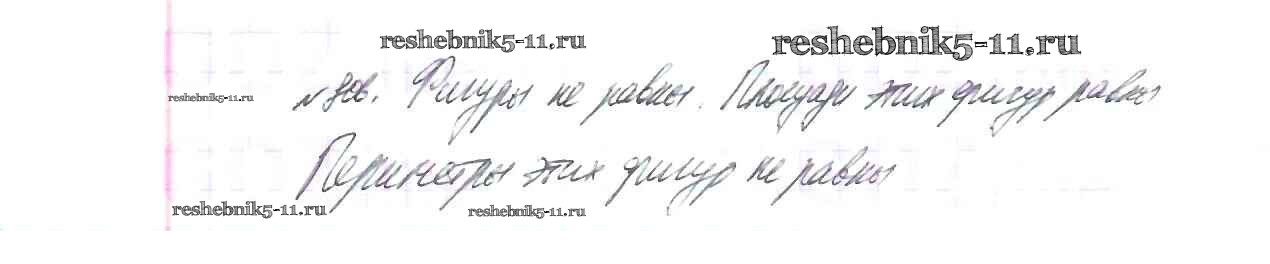 reshebnik5-11.ru reshebnik5-11.ru
reshebnik5-11.ru № 706. Фигуры не равны. Площади этих фигур равны
Периметры этих фигур не равны
reshebnik5-11.ru reshebnik5-11.ru